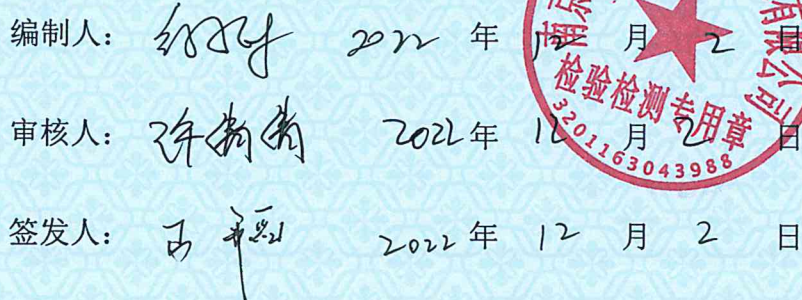 编制人： 2022 年 12 月 2 日
审核人：许 2022 年 12 月 2 日
签发人： 2022 年 12 月 2 日
南京
有限公司
检验检测专用章
3201163043988